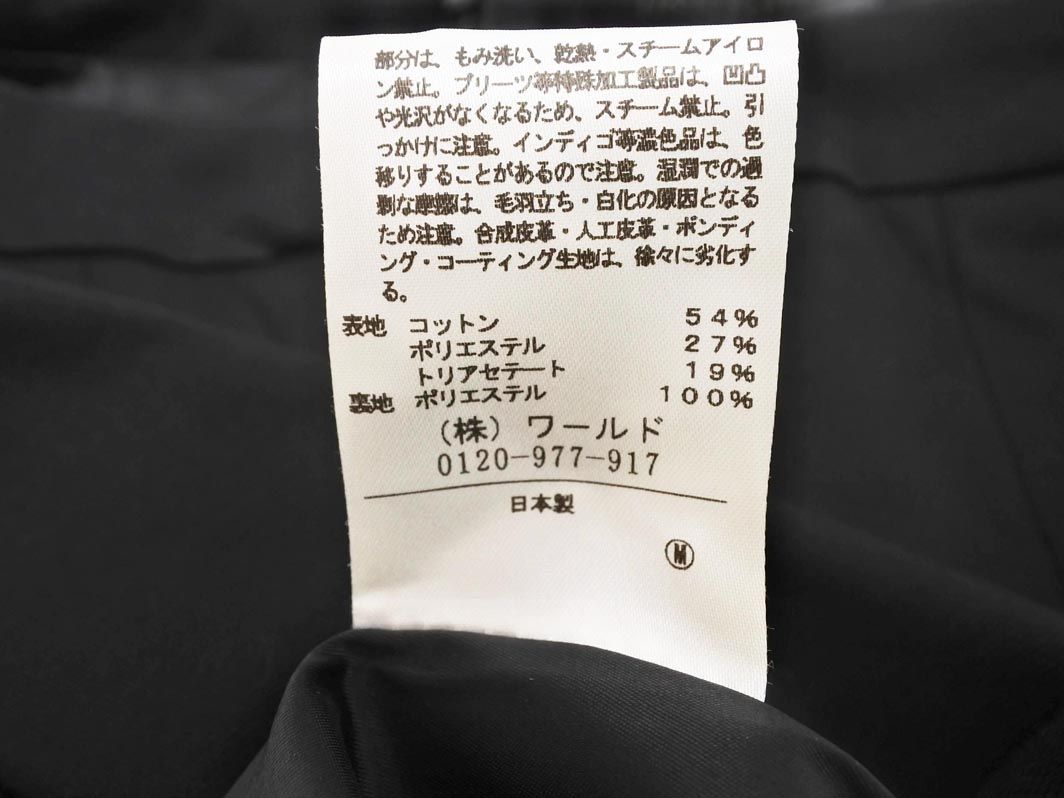 部分は、もみ洗い、乾熱・スチームアイロ
ン禁止。プリーツ等特殊加工製品は、凹凸
や光沢がなくなるため、スチーム禁止。引
っかけに注意。インディゴ等濃色品は、色
移りすることがあるので注意。湿潤での過
剰な摩擦は、毛羽立ち・白化の原因となる
ため注意。合成皮革・人工皮革・ボンディ
ング・コーティング生地は、徐々に劣化す
る。
表地 コットン 54%
ポリエステル 27%
トリアセテート 19%
裏地 ポリエステル 100%
(株) ワールド
0120-977-917
日本製
M